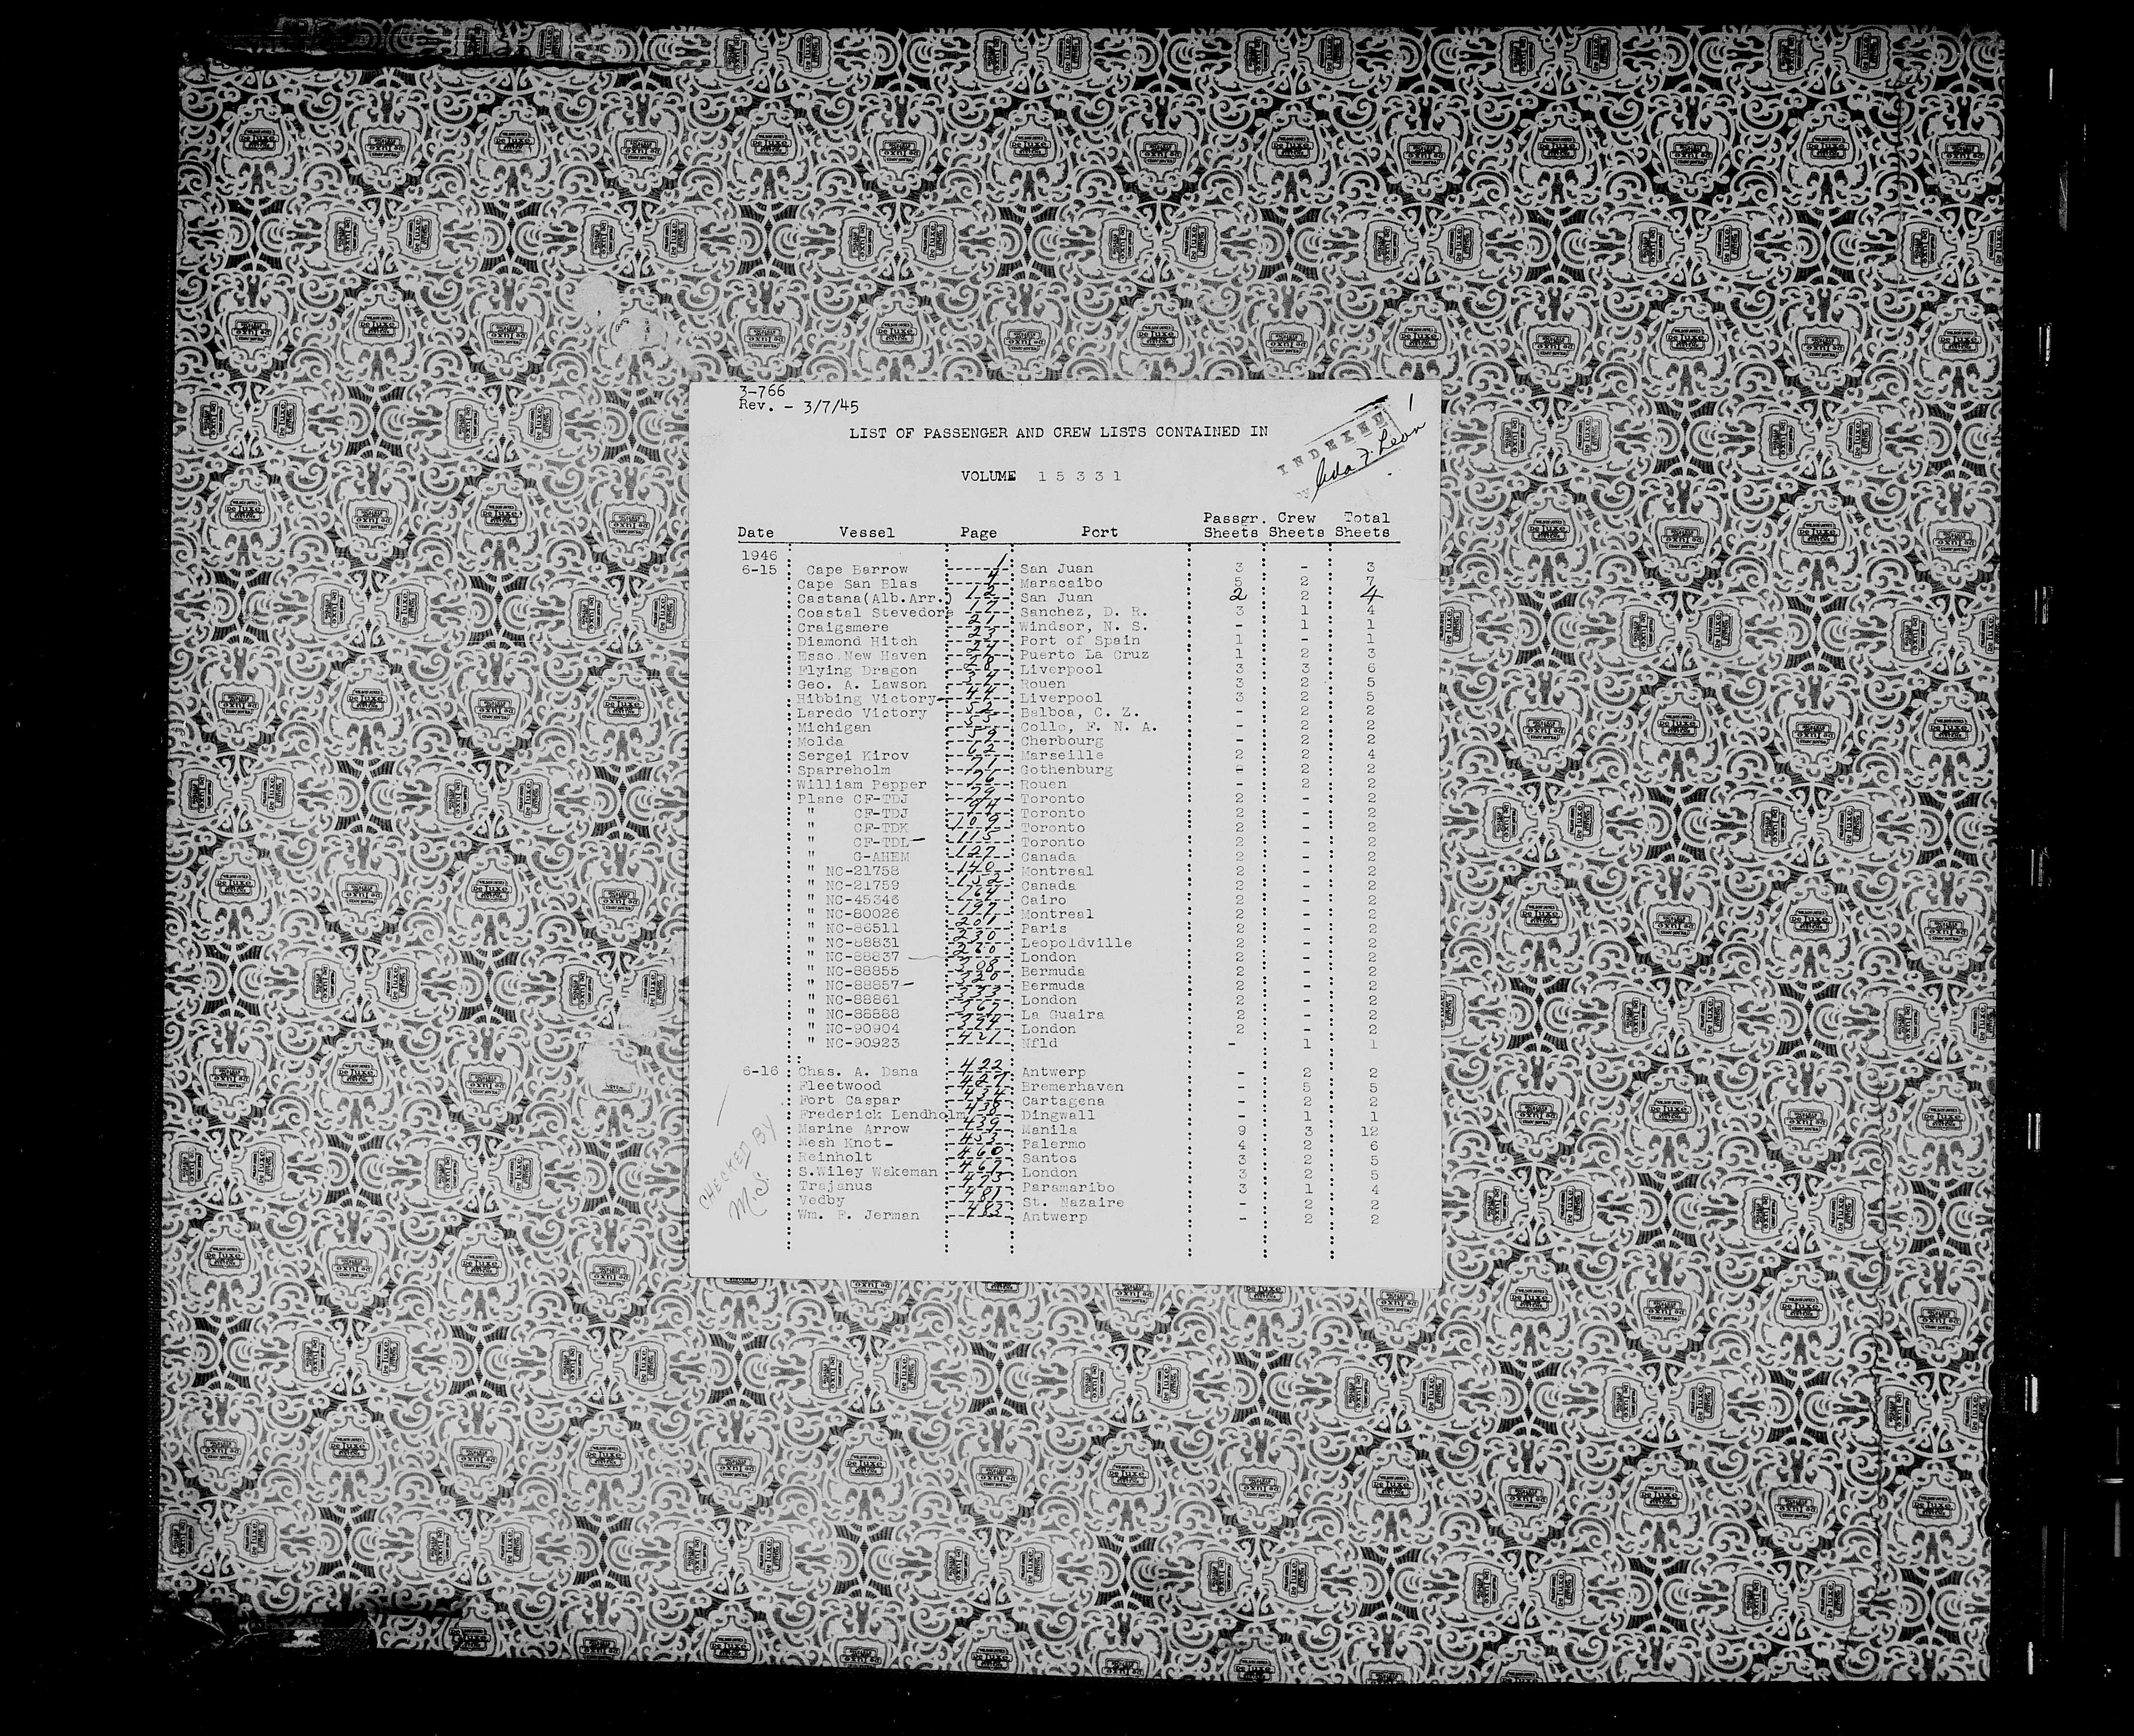 3-766
Rev. - 3/7/45
1
LIST OF PASSENGER AND CREW LISTS CONTAINED IN
INDEXED
VOLUME 1 5 3 3 1
Date Vessel Page Port Passgr. Sheets Crew Sheets Total Sheets
1946
6-15 Cape Barrow 1 San Juan 3 - 3
Cape San Blas 4 Maracaibo 5 2 7
Castana(Alb.Arr.) 12 San Juan 2 2 4
Coastal Stevedore 17 Sanchez, D. R. 3 1 4
Craigsmere 21 Windsor, N. S. - 1 1
Diamond Hitch 23 Port of Spain 1 - 1
Esso New Haven 24 Puerto La Cruz 1 2 3
Flying Dragon 28 Liverpool 3 3 6
Geo. A. Lawson 34 Rouen 3 2 5
Hibbing Victory- 44 Liverpool 3 2 5
Laredo Victory 52 Balboa, C. Z. - 2 2
Michigan 55 Collo, F. N. A. - 2 2
Molda 59 Cherbourg - 2 2
Sergei Kirov 62 Marseille 2 2 4
Sparreholm 71 Gothenburg - 2 2
William Pepper 76 Rouen - 2 2
Plane CF-TDJ 79 Toronto 2 - 2
" CF-TDJ Toronto 2 - 2
" CF-TDK 109 Toronto 2 - 2
" CF-TDL- 115 Toronto 2 - 2
" G-AHEM 127 Canada 2 - 2
" NC-21758 140 Montreal 2 - 2
" NC-21759 152 Canada 2 - 2
" NC-45346 Cairo 2 - 2
" NC-80026 197 Montreal 2 - 2
" NC-86511 201 Paris 2 - 2
" NC-88831 230 Leopoldville 2 - 2
" NC-88837 280 London 2 - 2
" NC-88855 308 Bermuda 2 - 2
" NC-88857- 320 Bermuda 2 - 2
" NC-88861 London 2 - 2
" NC-88888 La Guaira 2 - 2
" NC-90904 London 2 - 2
" NC-90923 421 Nfld - 1 1
6-16 Chas. A. Dana 422 Antwerp - 2 2
Fleetwood 427 Bremerhaven - 5 5
Fort Caspar 434 Cartagena - 2 2
Frederick Lendholm 438 Dingwall - 1 1
Marine Arrow 439 Manila 9 3 12
Mesh Knot- 453 Palermo 4 2 6
Reinholt 460 Santos 3 2 5
S.Wiley Wakeman 467 London 3 2 5
Trajanus 475 Paramaribo 3 1 4
Vedby 481 St. Nazaire - 2 2
Wm. F. Jerman 483 Antwerp - 2 2
CHECKED BY
M.S.